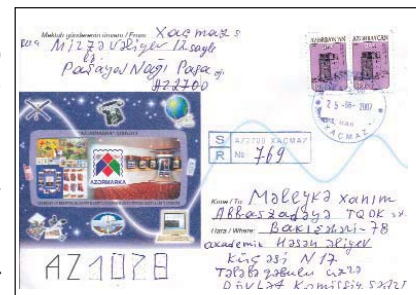 Məktub göndərənin ünvanı / From: Xaçmaz ş
Mirzə Vəliyev 12 saylı
Paşayev Nağı Paşa o.
AZ2700
AZƏRBAYCAN AZƏRBAYCAN
25-06-2007
XAÇMAZ
S A/2700 XAÇMAZ
R № 769
AZƏRMARKA
Kimə / To: Mələykə xanım
Abbaszadəyə TQDK
Hara / Where: Bakı şəhəri-78
akademik Həsən Əliyev
küçəsi N 17
Tələbə qəbulu üzrə
Dövlət Komissiyası
AZ1078